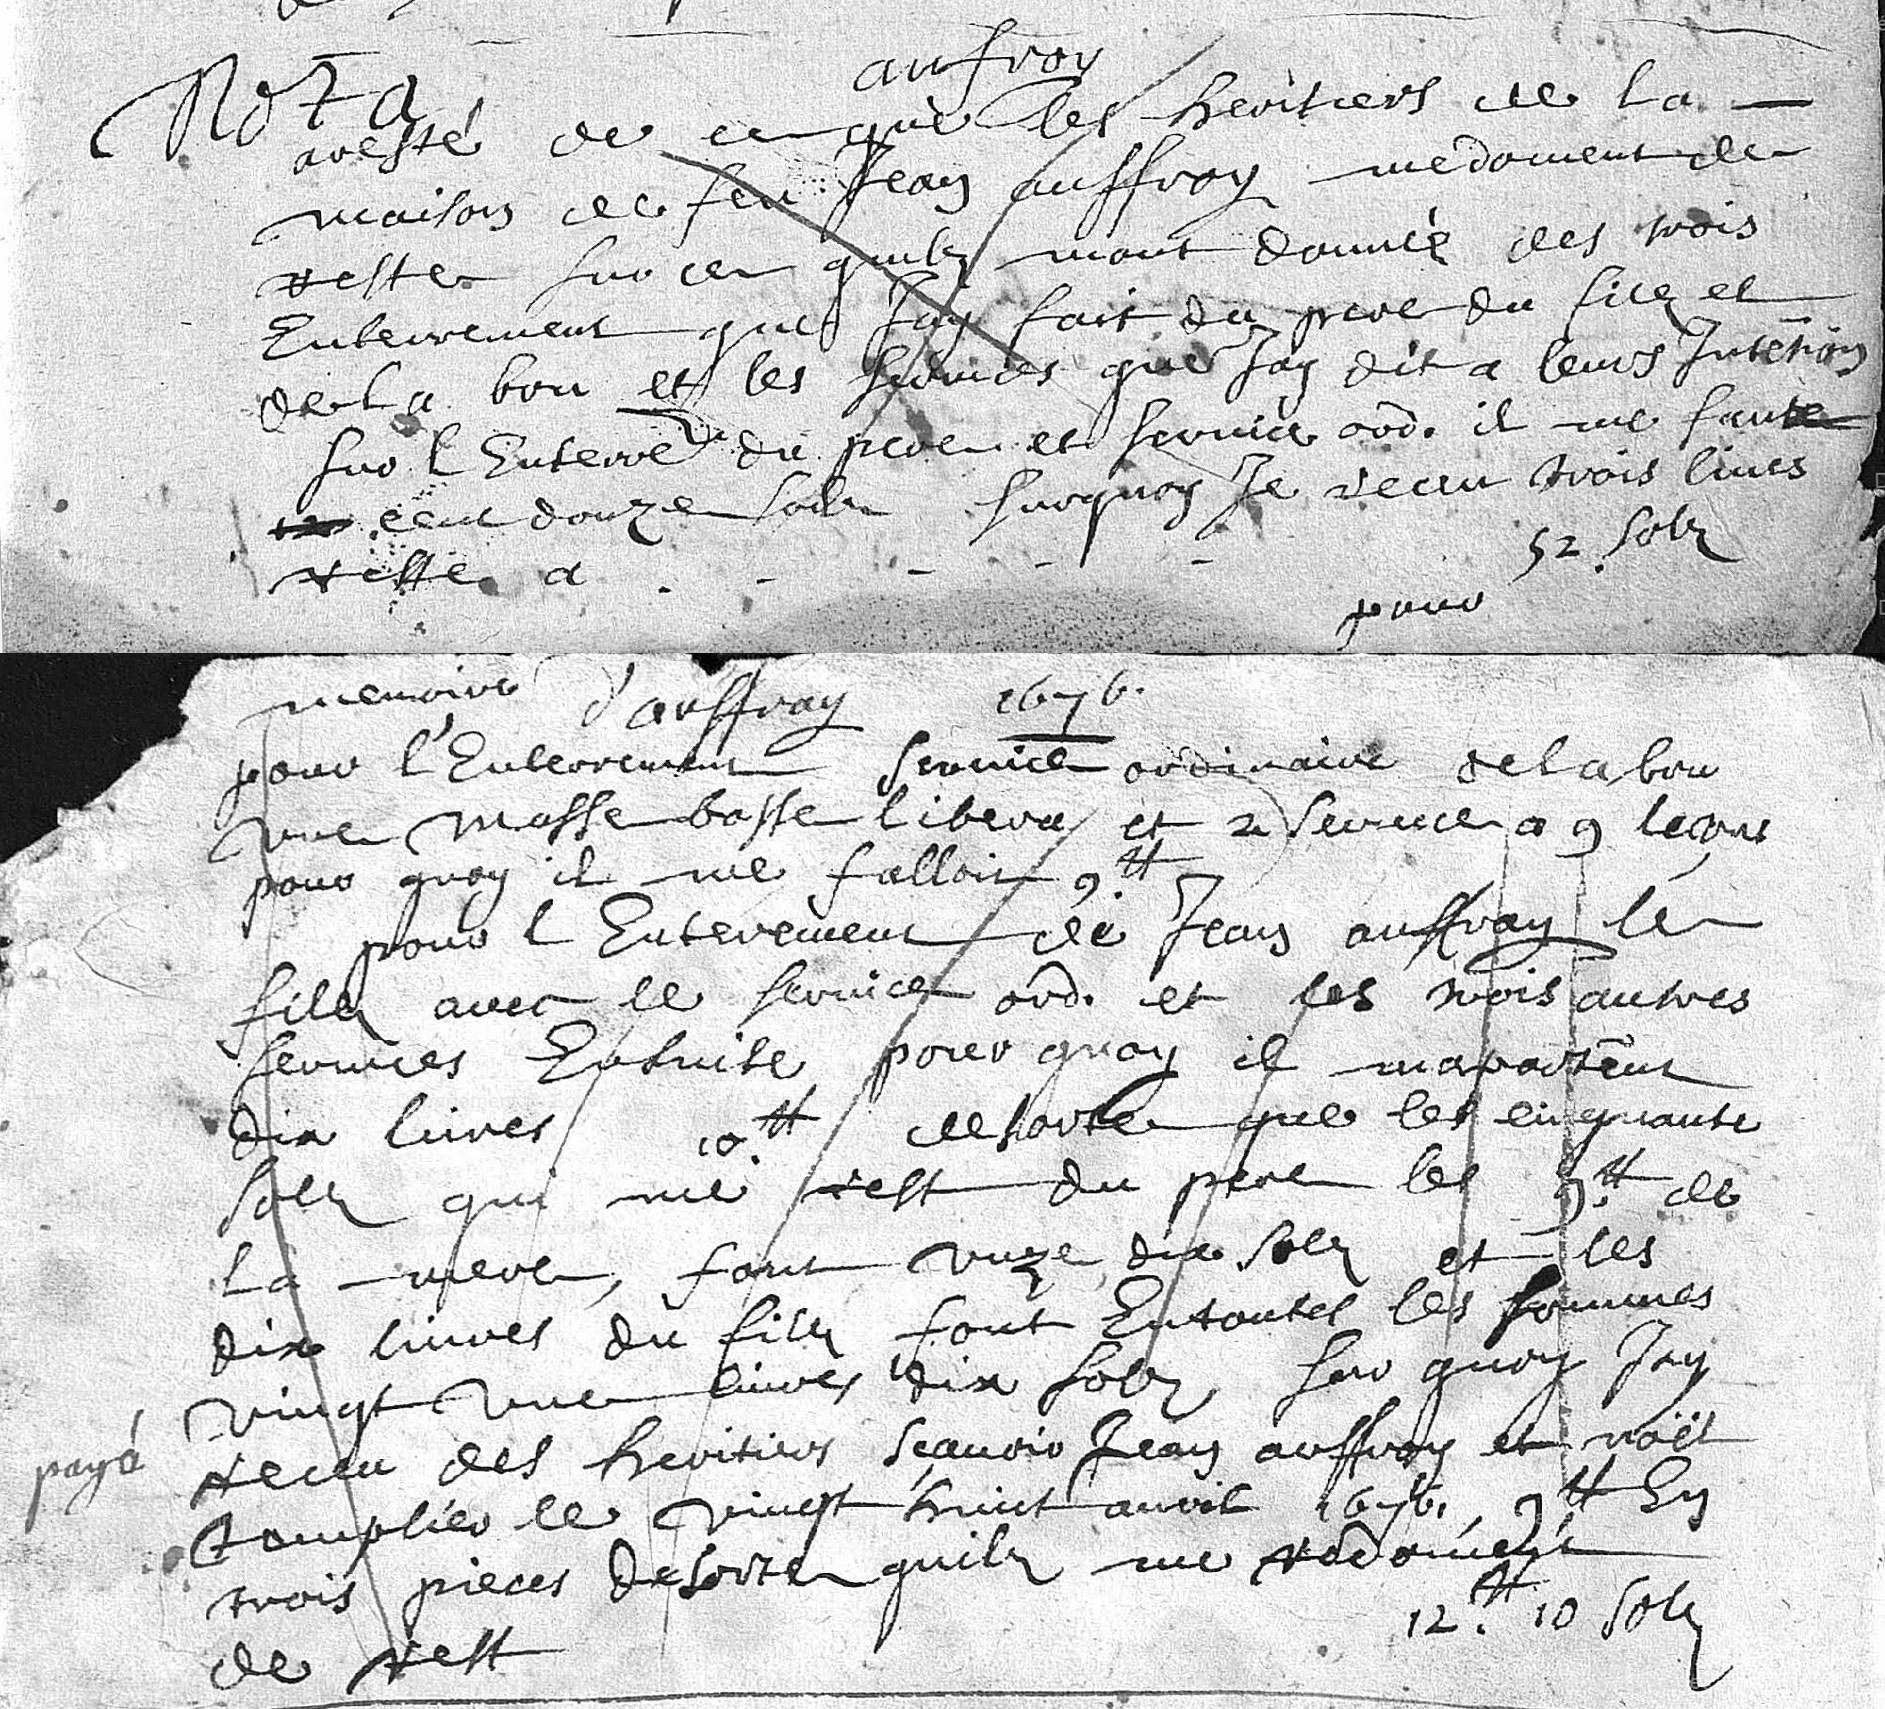 Nota
aufroy
aresté de ce que les heritiers de la
maison de feu Jean auffroy me doivent de
reste sur ce quilz mont donné des trois
Enterrement que Jay fait du pere du filz et
de la bru et les services que Jay dit a leurs Intention
sur l Enterre du pere et service ord. il me faute
cent douze solz surquoy Je receu trois livres
reste a . - - - - 52. solz
pour
memoire d'auffray 1676.
pour l'Enterrement service ordinaire de la bru
une Messe basse libera et 2 service a 9 leçons
pour quoy il me falloit 9.tt
pour l Enterement de Jean auffray le
filz avec le service ord. et les trois autres
services Ensuite pour quoy il mapartent
dix livres 10.tt de sorte que les cinquante
solz qui me rest du pere les 9.tt de
la mere, font unze dix solz et les
dix livres du filz font Entoutes les sommes
vingt une livres dix solz, sur quoy Jay
receu des heritiers sçavoir Jean auffray et noël
payé
templier le vingt huict avril 1676. 9tt En
trois pieces de sorte quilz me
de rest 12.tt 10 solz